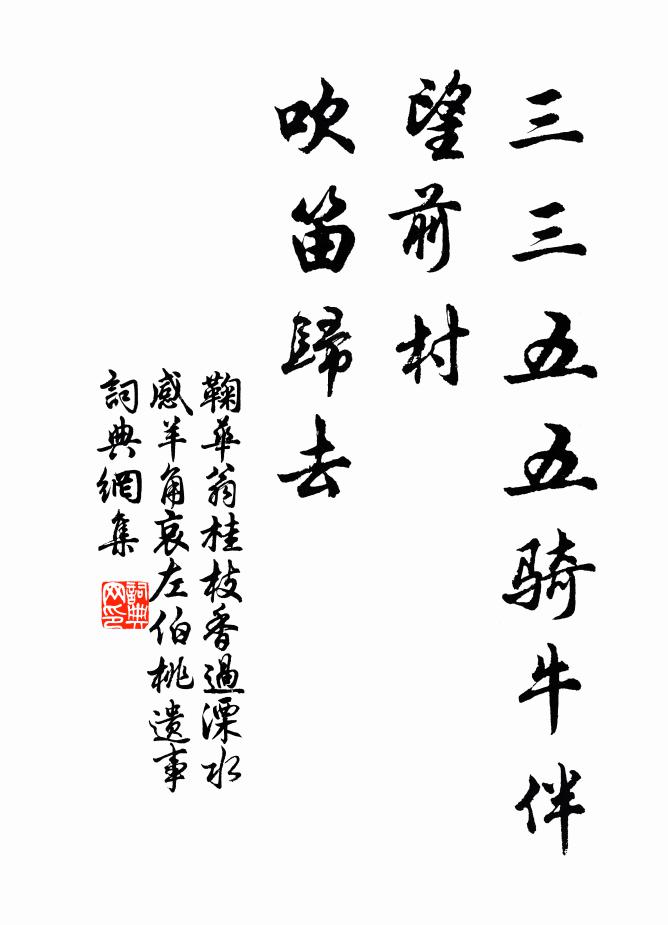 三三五五騎牛伴
望前村
吹笛歸去
鞠華翁桂枝香過溧水
感羊角哀左伯桃遺事
詞典網集
詞典網印